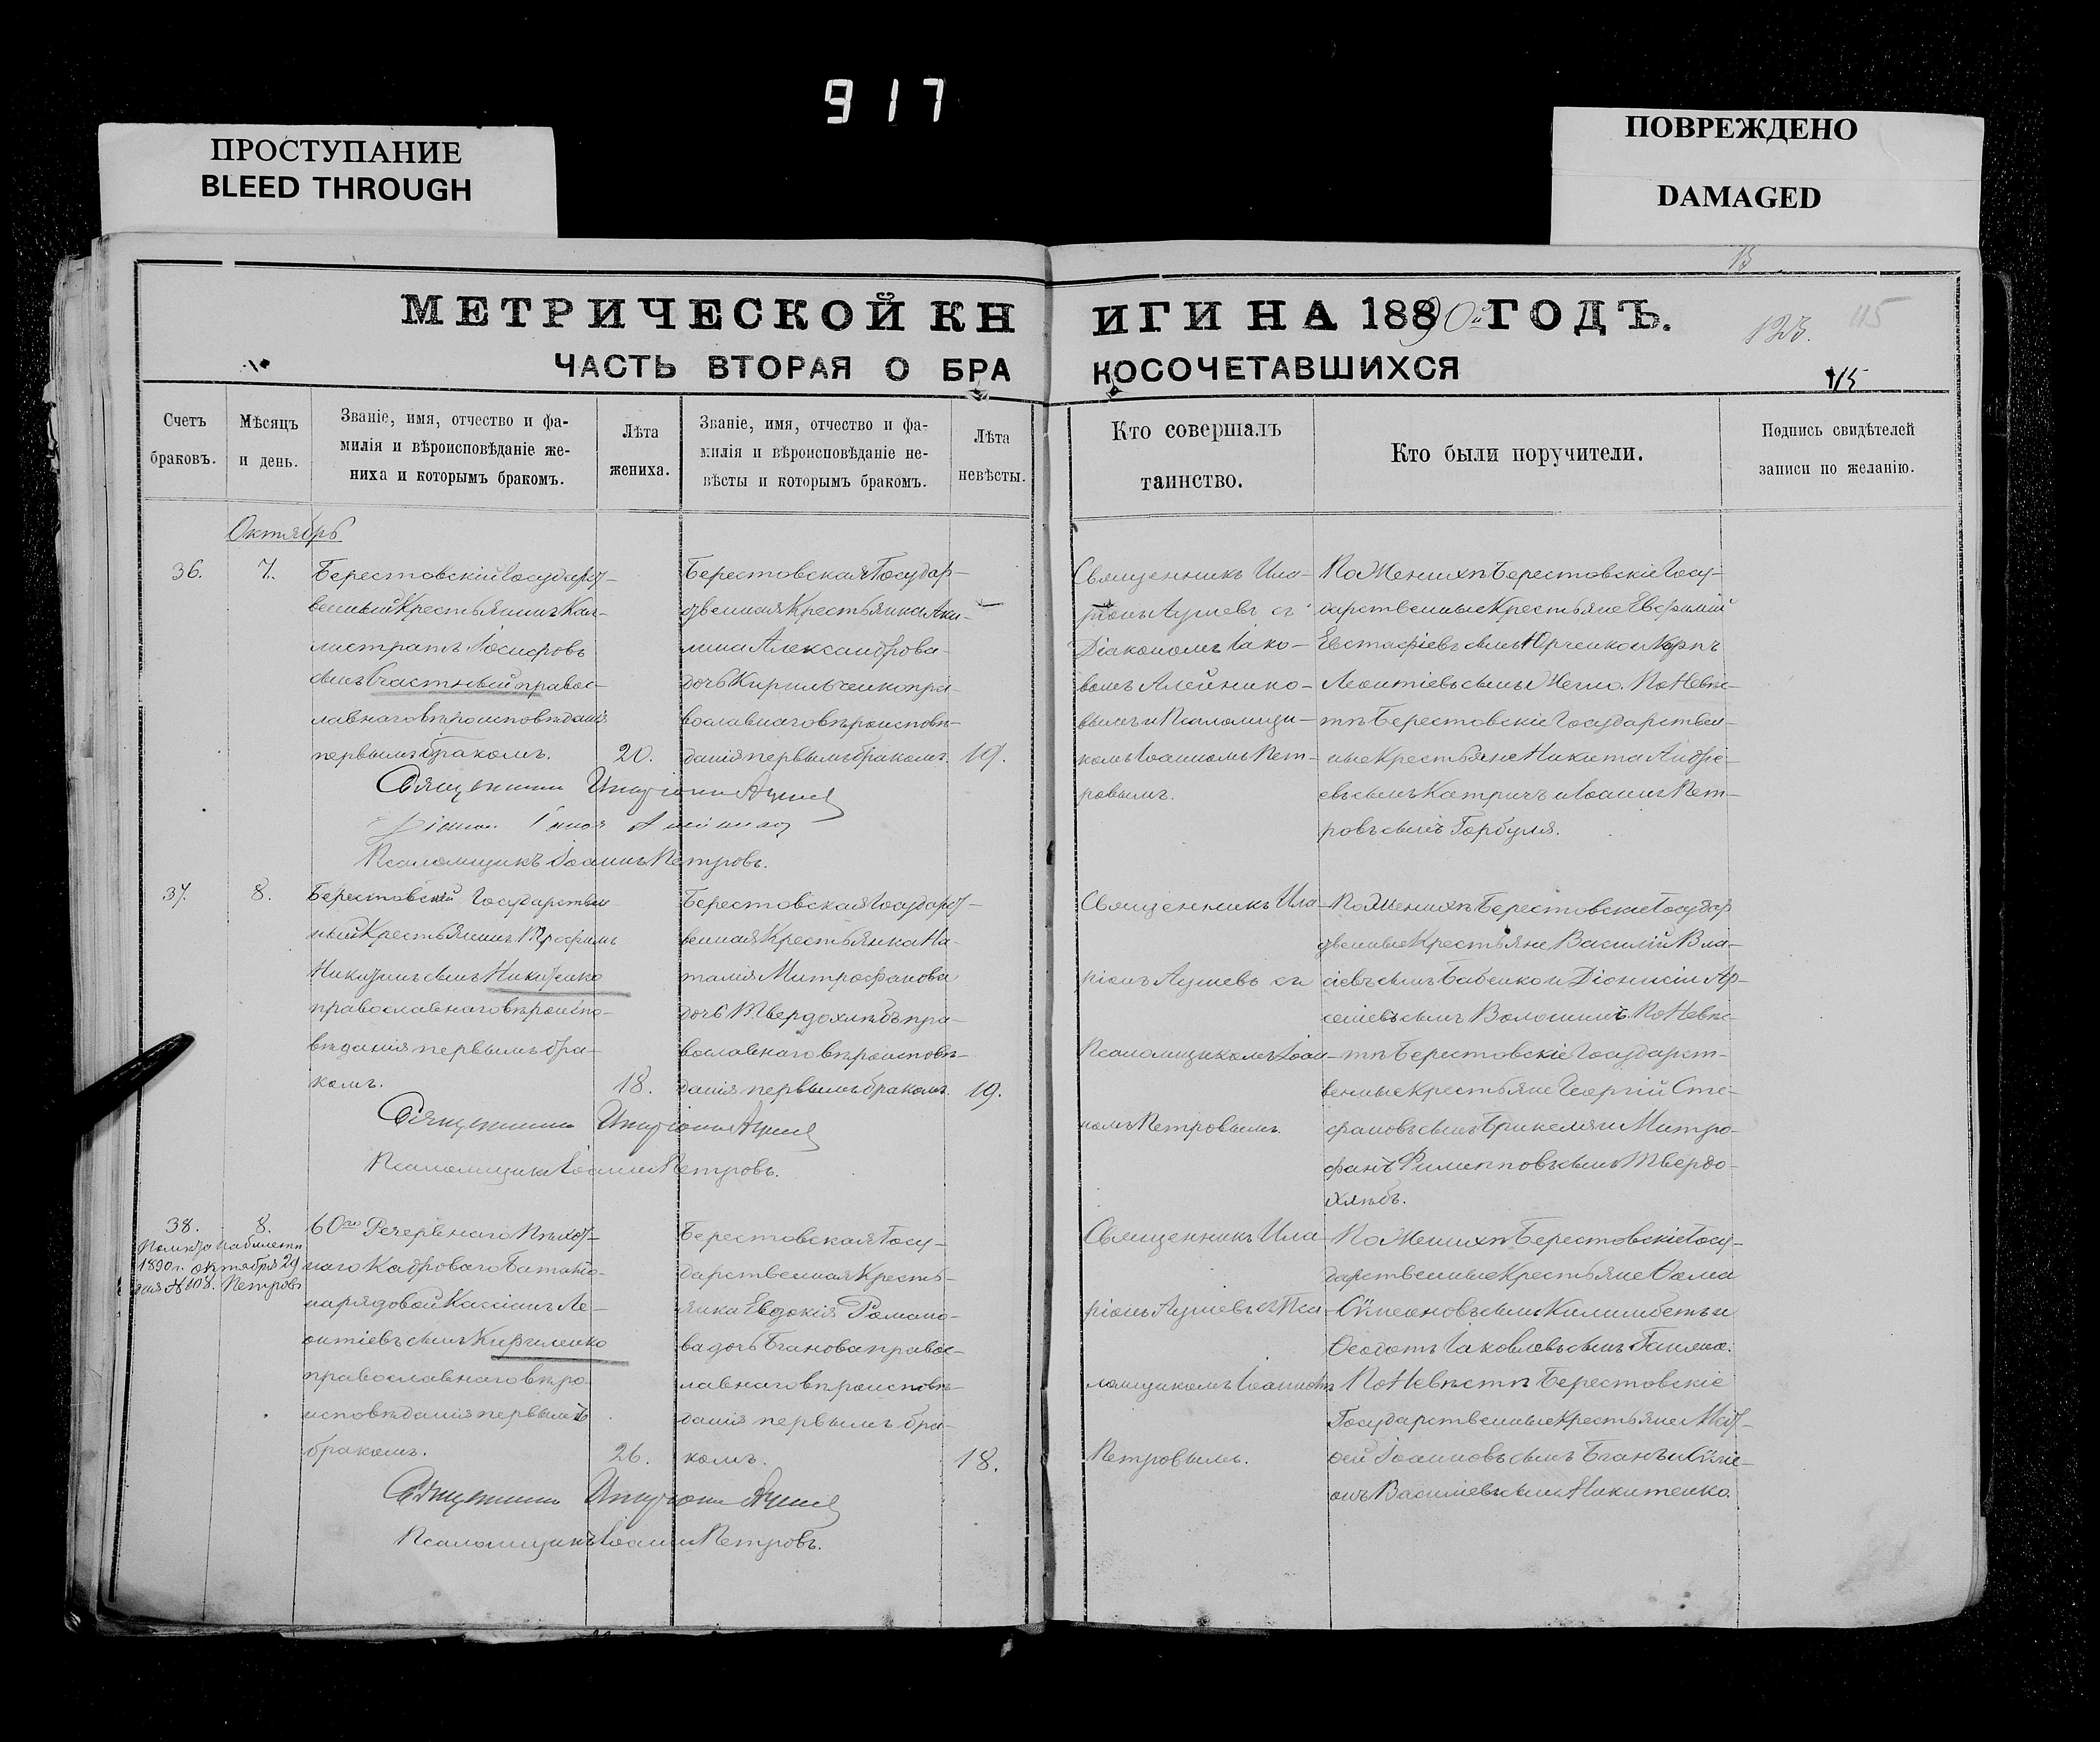 917
ПРОСТУПАНИЕ
BLEED THROUGH
ПОВРЕЖДЕНО
DAMAGED
МЕТРИЧЕСКОЙ КН
ИГИ НА 1890й ГОДЪ.
123.
115
ЧАСТЬ ВТОРАЯ О БРА
КОСОЧЕТАВШИХСЯ
115
Счетъ
браковъ.
Мѣсяцъ
и день.
Званіе, имя, отчество и фа-
милія и вѣроисповѣданіе же-
ниха и которымъ бракомъ.
Лѣта
жениха.
Званіе, имя, отчество и фа-
милія и вѣроисповѣданіе не-
вѣсты и которымъ бракомъ.
Лѣта
невѣсты.
Кто совершалъ
таинство.
Кто были поручители.
Подпись свидѣтелей
записи по желанію.
Октябрь
36.
7.
Берестовскій Государст-
венный Крестьянинъ Кал-
листратъ Іосифовъ
сынъ Счастный правос-
лавнаго вѣроисповѣданія
первымъ бракомъ.
20.
Берестовская Государ-
ственная Крестьянка Аки-
лина Александрова
дочь Кирильченко пра-
вославнаго вѣроисповѣ-
данія первымъ бракомъ.
19.
Священникъ Ила-
ріонъ Ауліевъ съ
Діакономъ Іако-
вомъ Алейнико-
вымъ и Псаломщи-
комъ Іоанномъ Пет-
ровымъ.
По Женихѣ Берестовскіе Госу-
дарственные Крестьяне Евфимій
Евстафіевъ сынъ Юрченко и Карпъ
Леонтіевъ сынъ . По Невѣс-
тѣ Берестовскіе Государствен-
ные Крестьяне Никита Андре-
евъ сынъ Катричъ и Іоаннъ Пет-
ровъ сынъ Горбуля.
Священникъ Иларіонъ
Псаломщикъ Іоаннъ Петровъ.
37.
8.
Берестовскій Государствен
ный Крестьянинъ Трофимъ
Никитинъ сынъ Никитенко
православнаго вѣроиспо-
вѣданія первымъ бра-
комъ.
18.
Берестовская Государст-
венная Крестьянка На-
талія Митрофанова
дочь Твердохлѣбъ пра-
вославнаго вѣроисповѣ-
данія первымъ бракомъ.
19.
Священникъ Ила-
ріонъ Ауліевъ съ
Псаломщикомъ Іоан-
номъ Петровымъ.
По Женихѣ Берестовскіе Государ
ственные Крестьяне Василій Вла-
сіевъ сынъ Бабенко и Діонисій Ар-
сеніевъ сынъ Волошинъ. По Невѣс-
тѣ Берестовскіе Государст-
венные Крестьяне Георгій Сте-
фановъ сынъ и Митро-
фанъ Филипповъ сынъ Твердо-
хлѣбъ.
Священникъ Иларіонъ
Псаломщикъ Іоаннъ Петровъ.
38.
8.
1890 г. октября 29
дня № 108. Петровъ
60го Резервнаго Пѣхот-
наго Кадроваго Баталіо-
на рядовой Кассіанъ Ле-
онтіевъ сынъ Кириленко
православнаго вѣро
исповѣданія первымъ
бракомъ.
26.
Берестовская Госу-
дарственная Кресть-
янка Евдокія Романо-
ва дочь Бганова правос-
лавнаго вѣроисповѣ-
данія первымъ бра-
комъ.
18.
Священникъ Ила
ріонъ Ауліевъ съ Пса
ломщикомъ Іоанномъ
Петровымъ.
По Женихѣ Берестовскіе Госу-
дарственные Крестьяне Ѳома
Сѵмеоновъ сынъ и
Ѳеодотъ Іаковлевъ сынъ .
По Невѣстѣ Берестовскіе
Государственные Крестьяне Мат-
ѳей Іоанновъ сынъ Бганъ и Сѵме-
онъ Василіевъ сынъ Никитенко.
Священникъ Иларіонъ
Псаломщикъ Іоаннъ Петровъ.